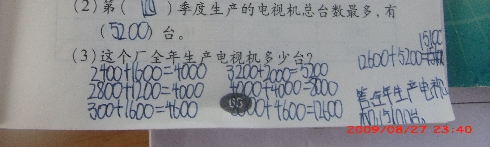 (2)第( )季度生产的电视机总台数最多,有
(5200)台。
(3)这个厂全年生产电视机多少台?
2400+1600=4000 3200+2000=5200
2800+1200=4000 4000+4000=8000
300+1600=4600 8000+4600=12600
12600+5200=
15100
答:全年生产电视
机15100台。
65
2009/08/27 23:40